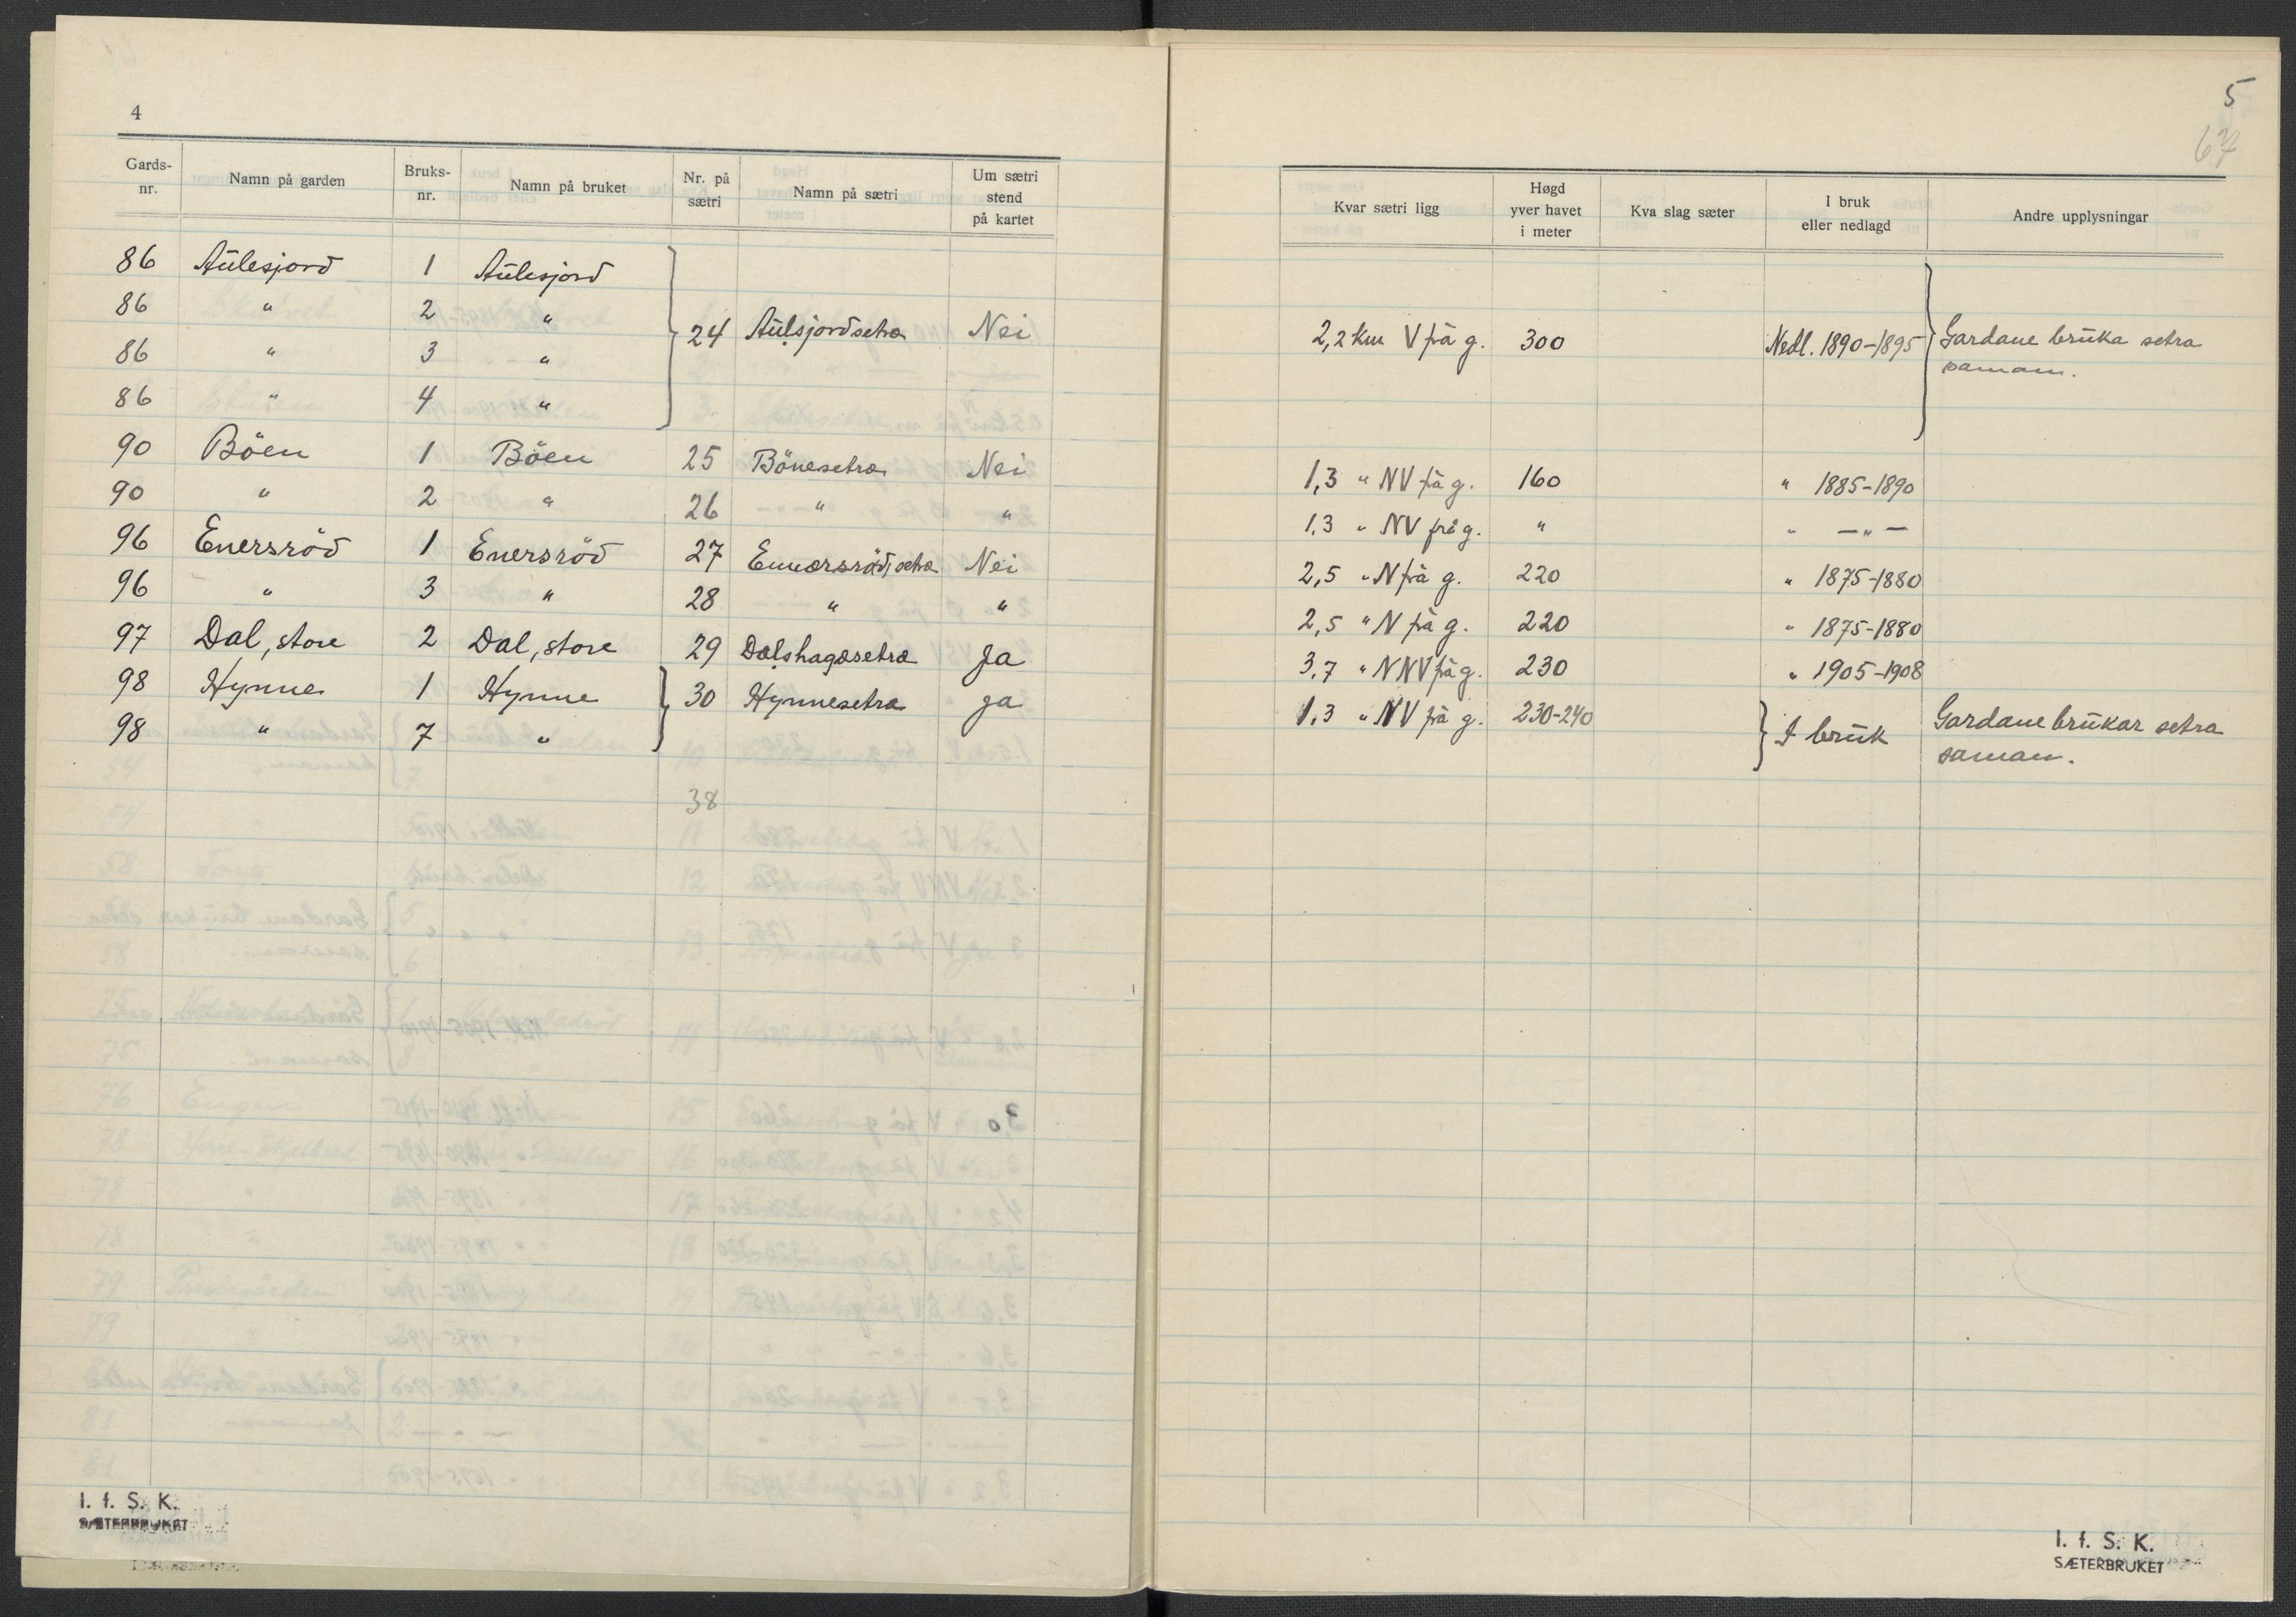 4
Gards-nr. Namn på garden Bruks-nr. Namn på bruket Nr. på sætri Namn på sætri Um sætri stend på kartet
86 Aulesjord 1 Aulesjord
86 " 2 "
24 Aulsjordsetra Nei
86 " 3 "
86 " 4 "
90 Böen 1 Böen 25 Bönesetra Nei
90 " 2 " 26 " "
96 Enersröd 1 Enersröd 27 Ennersrödsetra Nei
96 " 3 " 28 " "
97 Dal, store 2 Dal, store 29 Dalshagasetra Ja
98 Hynne 1 Hynne 30 Hynnesetra Ja
98 " 7 "
38
I. f. S. K.
SÆTERBRUKET
5
67
Kvar sætri ligg Høgd yver havet i meter Kva slag sæter I bruk eller nedlagd Andre upplysningar
2,2 km V frå g. 300 Nedl. 1890-1895 Gardane bruka setra
saman.
1,3 " NV frå g. 160 " 1885-1890
1,3 " NV frå g. " " — " —
2,5 " N frå g. 220 " 1875-1880
2,5 " N frå g. 220 " 1875-1880
3,7 " NNV frå g. 230 " 1905-1908
1,3 " NV frå g. 230-240 I bruk Gardane brukar setra
saman.
I. f. S. K.
SÆTERBRUKET